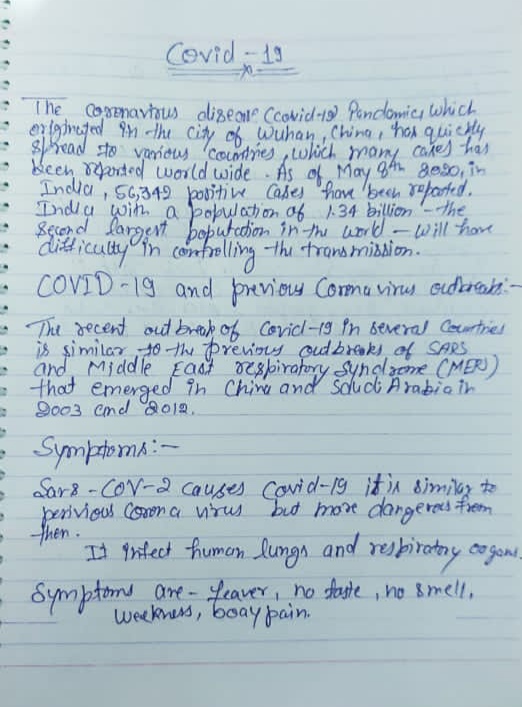 Covid-19
The coronavirus disease (covid-19) Pandamic, which
originated in the city of Wuhan, China, has quickly
spread to various countries, which many cases has
been reported world wide. As of May 8th 2020, in
India, 56,342 positive cases have been reported.
India with a population of 1.34 billion - the
second largest population in the world - will have
difficulty in controlling the transmission.
COVID-19 and previous Corona virus outbreaks:-
The recent outbreak of Covid-19 in several Countries
is similar to the previous outbreaks of SARS
and Middle East respiratory Syndrome (MERS)
that emerged in China and Saudi Arabia in
2003 and 2012.
Symptoms:-
Sars-COV-2 causes Covid-19 it is similar to
perivious Corona virus but more dangerous from
then.
It infect human lungs and respiratory organs.
Symptoms are- feaver, no taste, no smell,
weakness, boay pain.